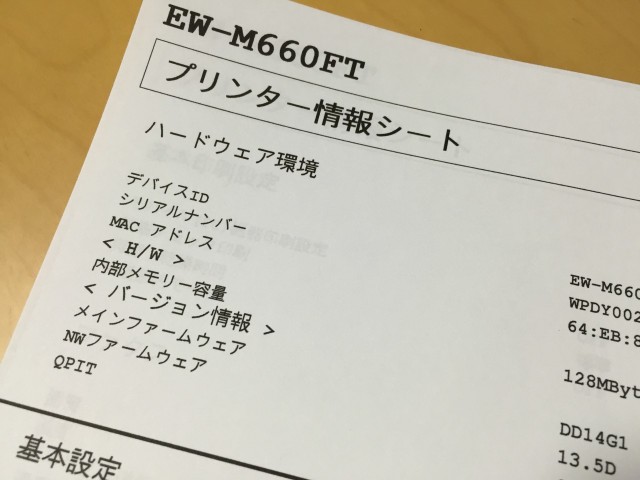 EW-M660FT
プリンター情報シート
ハードウェア環境
デバイスID EW-M660
シリアルナンバー WPDY002
MAC アドレス 64:EB:8
< H/W >
内部メモリー容量 128MByt
< バージョン情報 >
メインファームウェア DD14G1
NWファームウェア 13.5D
QPIT
基本設定